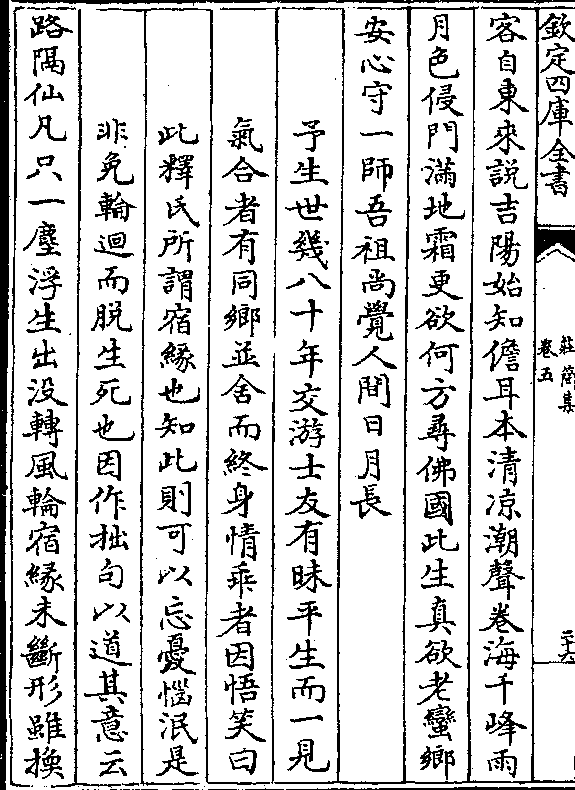 欽定四庫全書
莊簡集
卷五
二十六
客自東來說吉陽始知儋耳本清凉潮聲卷海千峰雨
月色侵門滿地霜更欲何方尋佛國此生真欲老蠻鄉
安心守一師吾祖尚覺人間日月長
予生世幾八十年交游士友有昧平生而一見
氣合者有同鄉並舍而終身情乖者因悟笑曰
此釋氏所謂宿縁也知此則可以忘憂惱泯是
非免輪迴而脱生死也因作拙句以道其意云
路隅仙凡只一塵浮生出没轉風輪宿縁未斷形雖換